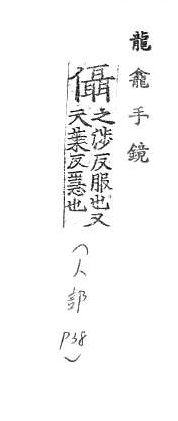 龍龕手鏡
儡之涉反服也又
天葉反惡也
(人部
P38)